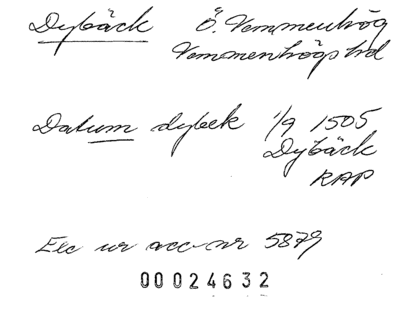 Dybäck Ö. Vemmenhög
Vemmenhögs hd
Datum dybek 1/9 1505
Dybäck
RAP
Exc ur acc-nr 5879
00024632